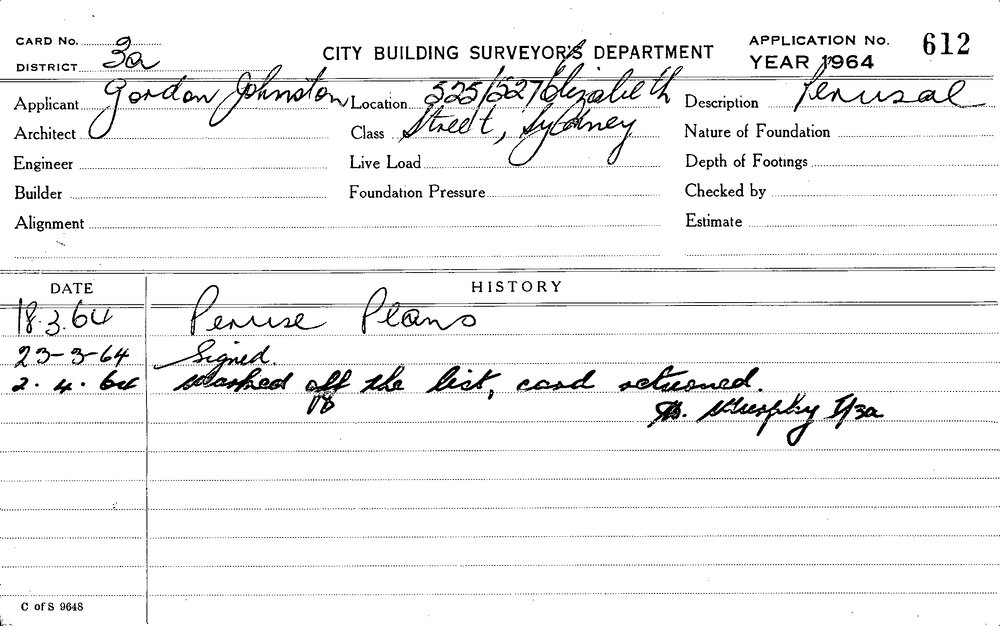 CARD No.
DISTRICT 3a
CITY BUILDING SURVEYOR'S DEPARTMENT
APPLICATION No. 612
YEAR 1964
Applicant Gordon Johnston Location 525/527 Elizabeth Description Perusal
Architect Class Street, Sydney Nature of Foundation
Engineer Live Load Depth of Footings
Builder Foundation Pressure Checked by
Alignment Estimate
DATE HISTORY
18.3.64 Peruse Plans
23-3-64 Signed.
2.4.64 Marked off the list, card returned.
Murphy I/3a
C of S 9648